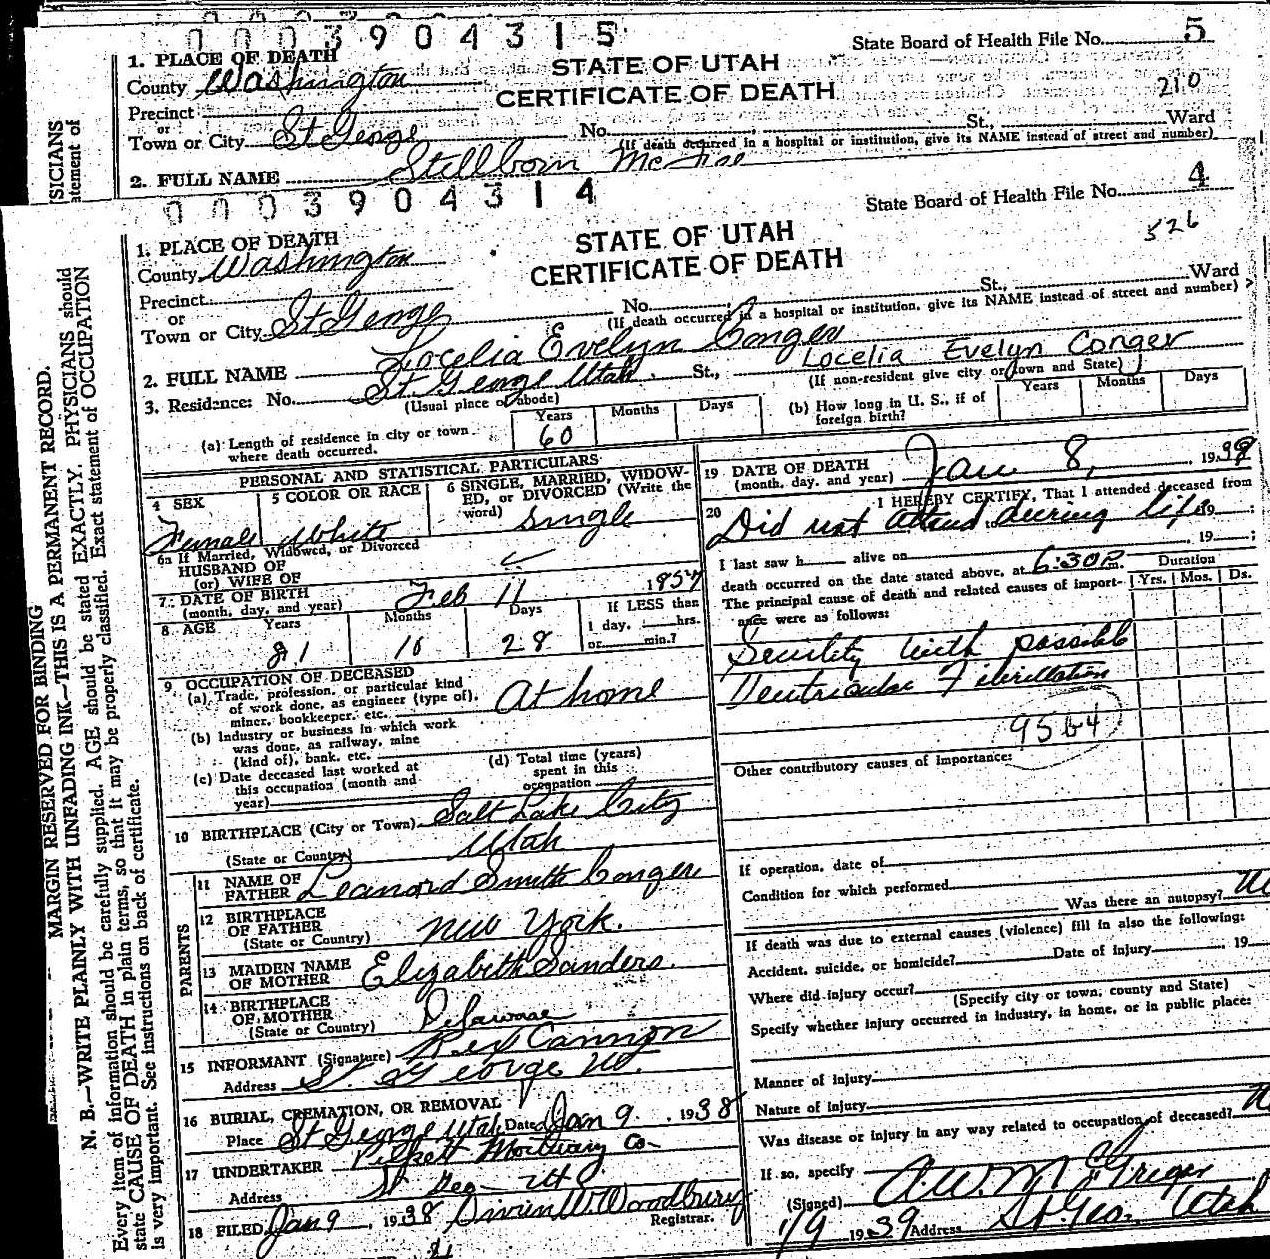 0003904315
State Board of Health File No. 5
1. PLACE OF DEATH
STATE OF UTAH
County Washington
CERTIFICATE OF DEATH
210
Precinct
or
Town or City St George No. St., Ward
(If death occurred in a hospital or institution, give its NAME instead of street and number)
2. FULL NAME Stillborn
0003904314
State Board of Health File No. 4
1. PLACE OF DEATH
STATE OF UTAH
526
County Washington
CERTIFICATE OF DEATH
Precinct
or
Town or City St George No. St., Ward
(If death occurred in a hospital or institution, give its NAME instead of street and number)
2. FULL NAME Locelia Evelyn Conger Locelia Evelyn Conger
3. Residence: No. St George Utah St.,
(Usual place of abode)
(If non-resident give city or town and State)
Years Months Days
Years Months Days
(a) Length of residence in city or town where death occurred. 60
(b) How long in U. S., if of foreign birth?
PERSONAL AND STATISTICAL PARTICULARS
4 SEX
5 COLOR OR RACE
6 SINGLE, MARRIED, WIDOW-
ED, or DIVORCED (Write the
word)
Female White Single
6a If Married, Widowed, or Divorced
HUSBAND OF
(or) WIFE OF
7 DATE OF BIRTH
(month, day, and year) Feb 11 1857
8 AGE Years Months Days If LESS than
1 day, hrs.
or min.?
81 10 28
9 OCCUPATION OF DECEASED
(a) Trade, profession, or particular kind
of work done, as engineer (type of),
miner, bookkeeper, etc. At home
(b) Industry or business in which work
was done, as railway, mine
(kind of), bank, etc.
(c) Date deceased last worked at
this occupation (month and
year)
(d) Total time (years)
spent in this
occupation
10 BIRTHPLACE (City or Town) Salt Lake City
(State or Country) Utah
PARENTS
11 NAME OF
FATHER Leanord Smith Conger
12 BIRTHPLACE
OF FATHER
(State or Country) New York.
13 MAIDEN NAME
OF MOTHER Elizabeth Sanders.
14 BIRTHPLACE
OF MOTHER
(State or Country) Delaware
15 INFORMANT (Signature) Rex Cannon
Address St. George Ut.
16 BURIAL, CREMATION, OR REMOVAL
Place St George Utah Date Jan 9. 1938
17 UNDERTAKER Mortuary Co-
Address St Geo- Ut
18 FILED Jan 9, 1938 W. Woodbury
Registrar.
19 DATE OF DEATH
(month, day, and year) Jan 8, 1939
20 I HEREBY CERTIFY, That I attended deceased from
Did not attend to during life 19 ;
, 19 ;
I last saw h alive on
death occurred on the date stated above, at 6:30 P.m.
The principal cause of death and related causes of import-
ance were as follows:
Duration
Yrs. Mos. Ds.
Senility with possible
Ventricular Fibrillation
Other contributory causes of importance:
If operation, date of
Condition for which performed
Was there an autopsy?
If death was due to external causes (violence) fill in also the following:
Accident, suicide, or homicide? Date of Injury , 19
Where did injury occur?
(Specify city or town, county and State)
Specify whether injury occurred in industry, in home, or in public place:
Manner of injury
Nature of injury
Was disease or injury in any way related to occupation of deceased?
If so, specify
(Signed) A.W. McGregor
1/9 1939 Address St. Geo. Utah
MARGIN RESERVED FOR BINDING
N. B.—WRITE PLAINLY WITH UNFADING INK—THIS IS A PERMANENT RECORD.
Every item of information should be carefully supplied. AGE should be stated EXACTLY. PHYSICIANS should
state CAUSE OF DEATH in plain terms, so that it may be properly classified. Exact statement of OCCUPATION
is very important. See instructions on back of certificate.